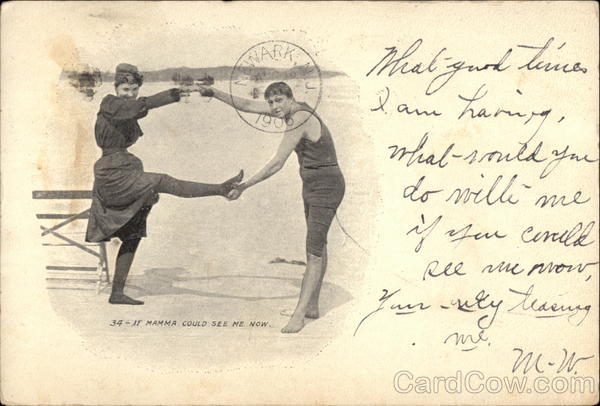 NEWARK, N.J.
1906
34 - IF MAMMA COULD SEE ME NOW.
What good times
I am having,
what would you
do with me
if you could
see me now,
Your very teasing
me.
M-W.
CardCow.com